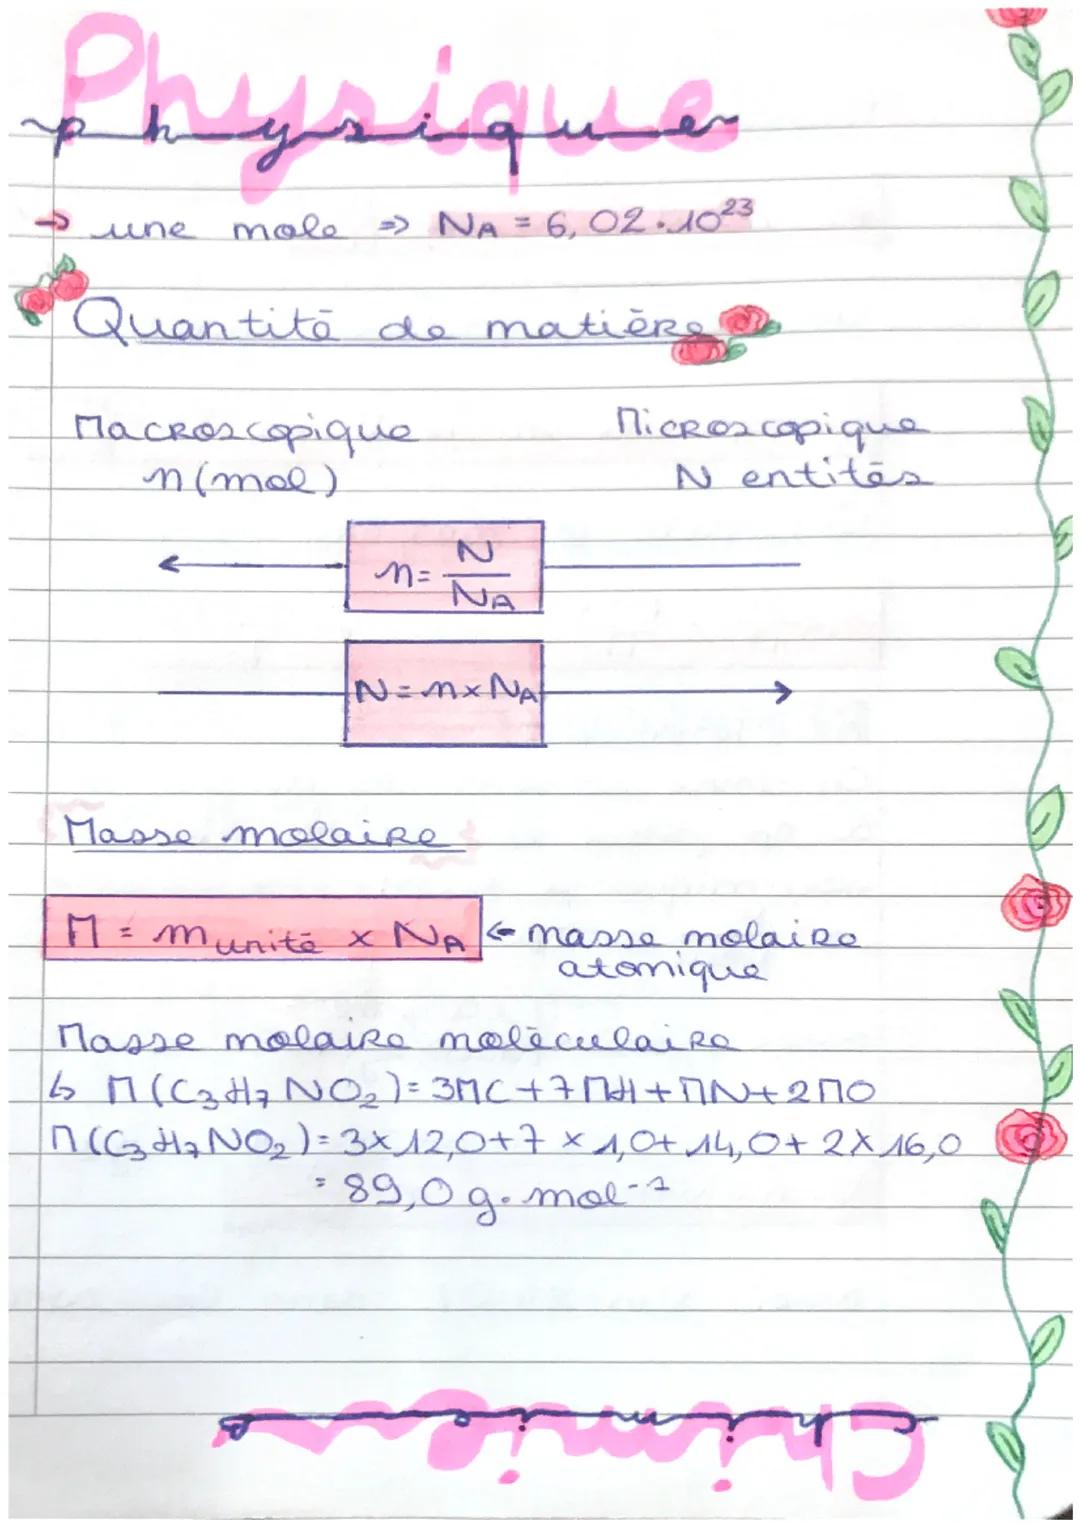 Physique
physique
→ une mole ⇒ NA = 6,02.10²³
Quantité de matière
Macroscopique Microscopique
n (mol) N entités
n = N/NA
N = n x NA
Masse molaire
M = m unité x NA ← masse molaire
atomique
Masse molaire moléculaire
↳ M (C₃H₇NO₂) = 3MC + 7MH + MN + 2MO
M (C₃H₇NO₂) = 3 x 12,0 + 7 x 1,0 + 14,0 + 2 x 16,0
= 89,0 g. mol⁻¹
Chimie
chimie